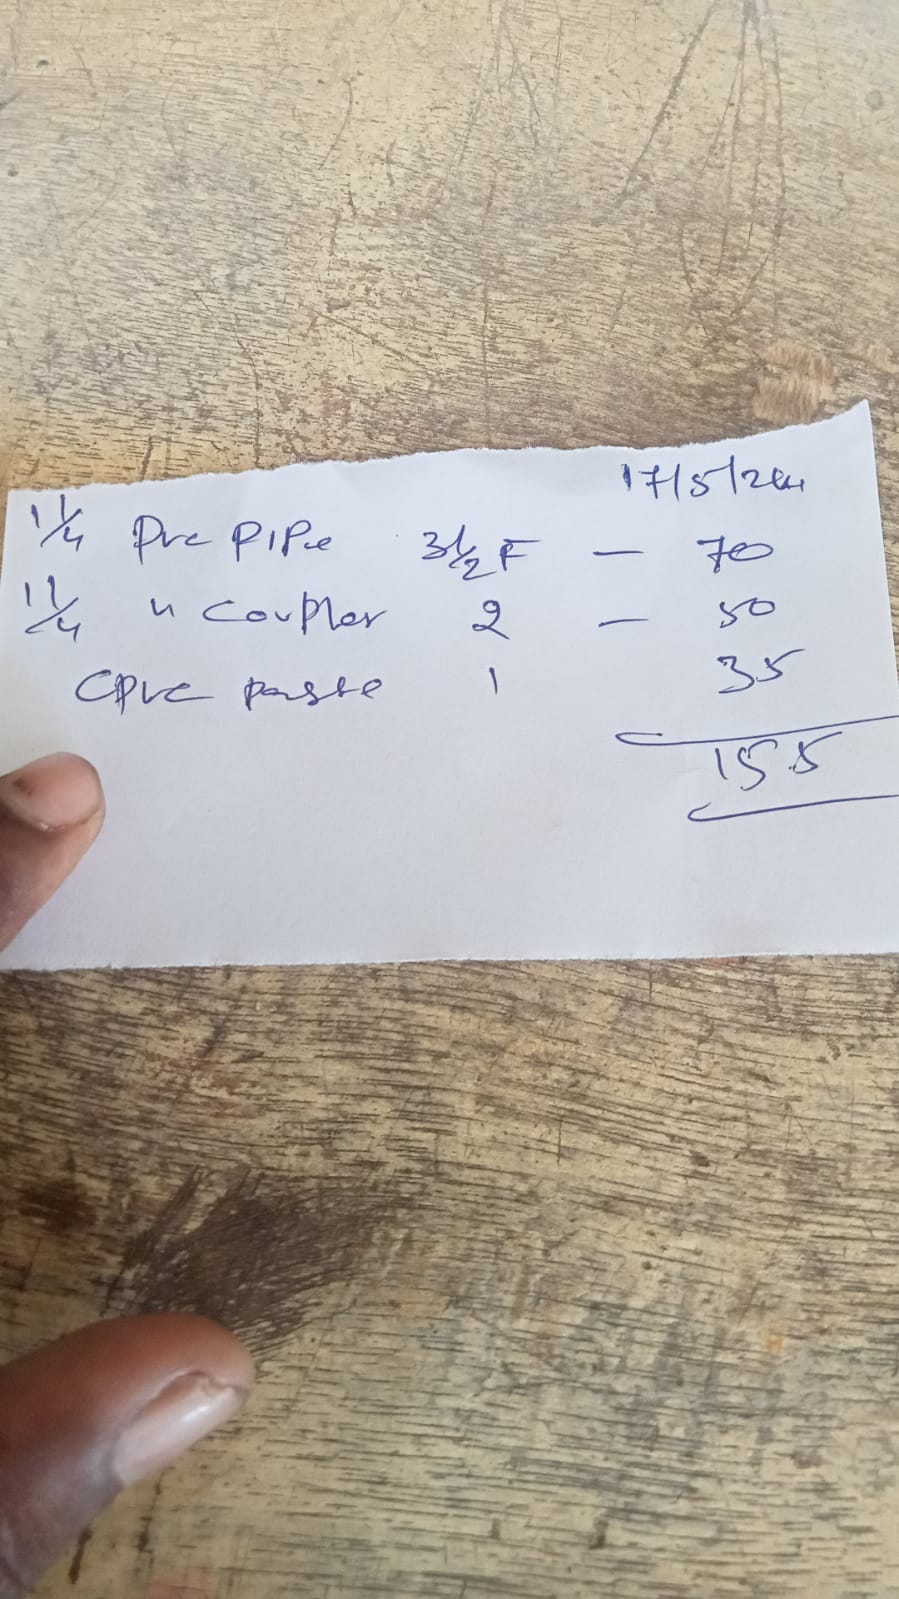 17/5/24
1 1/4 Pvc PIPe 3 1/2 F — 70
1 1/4 " Coupler 2 — 50
CPVC paste 1 35
155